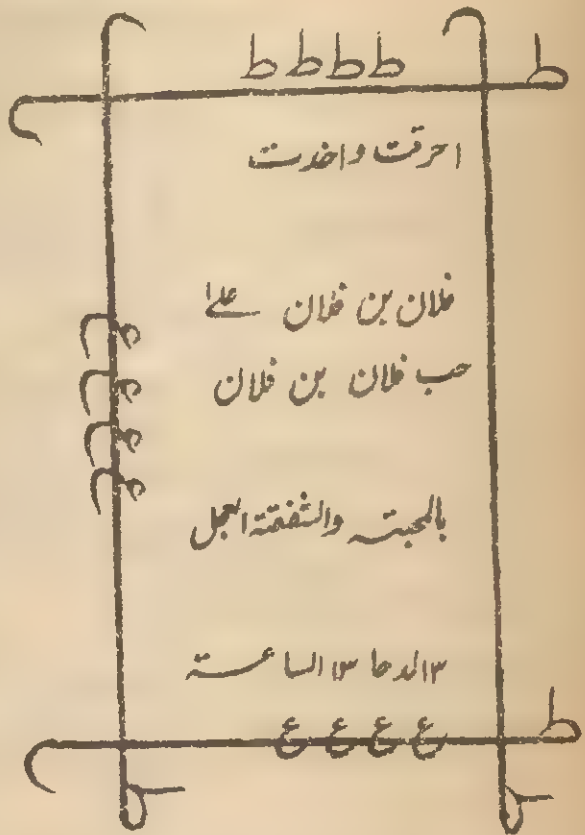 ط ط ط ط
ط
احرقت واخذت
فلان بن فلان علےٰ
حب فلان بن فلان
ع ع ع ع
بالمحبتہ والشفقتہ العجل
الساعتہ
ط
ع ع ع ع
ط ط